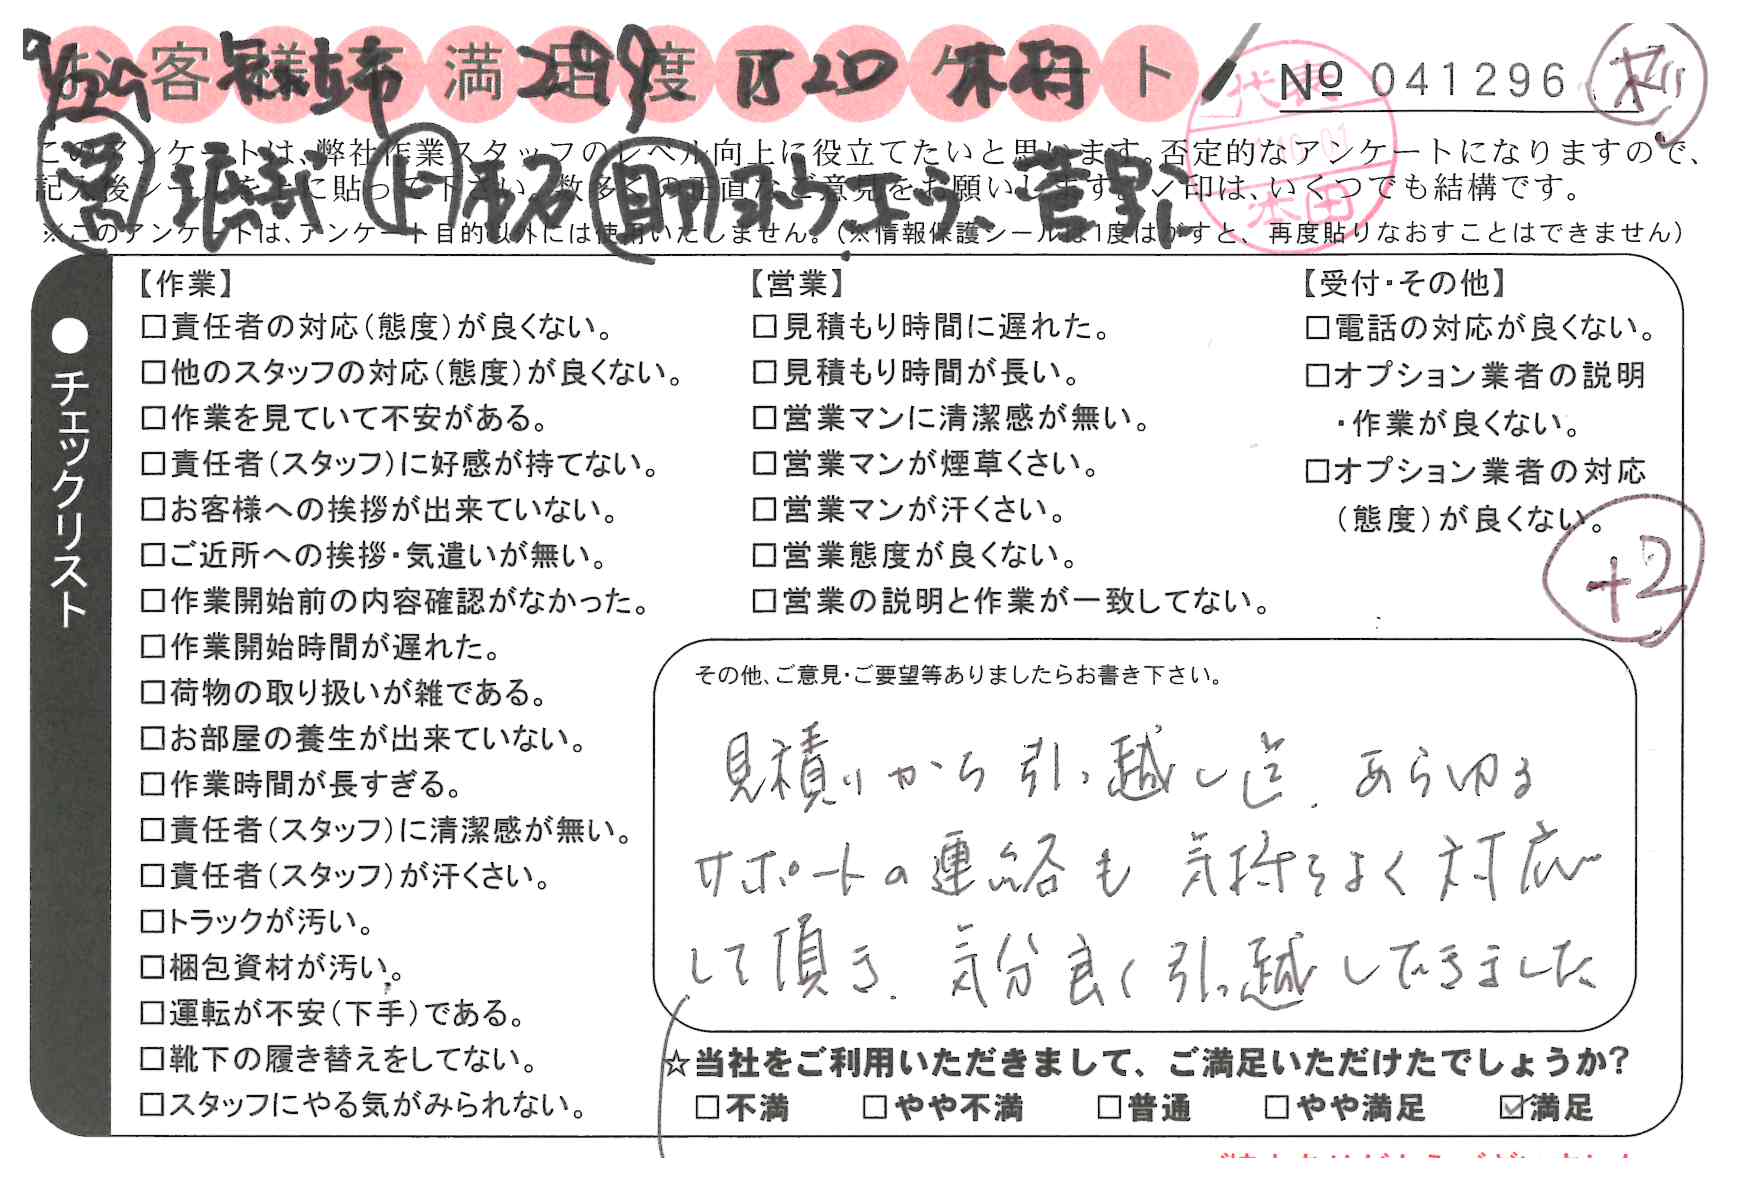 お客様満足度アンケート
№ 041296
このアンケートは、弊社作業スタッフのレベル向上に役立てたいと思います。否定的なアンケートになりますので、
記入後シールを上に貼って下さい。数多くの正直なご意見をお願いします。✓印は、いくつでも結構です。
※このアンケートは、アンケート目的以外には使用いたしません。(※情報保護シールは1度はがすと、再度貼りなおすことはできません)
代表
本田
●チェックリスト
【作業】
□責任者の対応(態度)が良くない。
□他のスタッフの対応(態度)が良くない。
□作業を見ていて不安がある。
□責任者(スタッフ)に好感が持てない。
□お客様への挨拶が出来ていない。
□ご近所への挨拶・気遣いが無い。
□作業開始前の内容確認がなかった。
□作業開始時間が遅れた。
□荷物の取り扱いが雑である。
□お部屋の養生が出来ていない。
□作業時間が長すぎる。
□責任者(スタッフ)に清潔感が無い。
□責任者(スタッフ)が汗くさい。
□トラックが汚い。
□梱包資材が汚い。
□運転が不安(下手)である。
□靴下の履き替えをしてない。
□スタッフにやる気がみられない。
【営業】
□見積もり時間に遅れた。
□見積もり時間が長い。
□営業マンに清潔感が無い。
□営業マンが煙草くさい。
□営業マンが汗くさい。
□営業態度が良くない。
□営業の説明と作業が一致してない。
【受付・その他】
□電話の対応が良くない。
□オプション業者の説明
・作業が良くない。
□オプション業者の対応
(態度)が良くない。
+2
その他、ご意見・ご要望等ありましたらお書き下さい。
見積りから引っ越し迄、あらゆる
サポートの連絡も気持ちよく対応
して頂き、気分良く引っ越しできました
☆当社をご利用いただきまして、ご満足いただけたでしょうか?
□不満 □やや不満 □普通 □やや満足 ☑満足